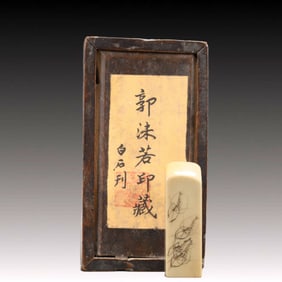 郭沫若印藏
白石刊